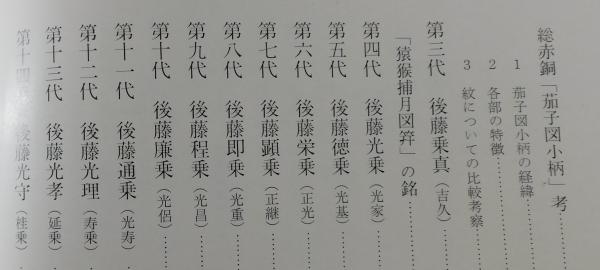 総赤銅「茄子図小柄」考…………
1 茄子図小柄の経緯…………
2 各部の特徴…………
3 紋についての比較考察…………
第三代 後藤乗真（吉久）…………
「猿猴捕月図笄」の銘…………
第四代 後藤光乗（光家）…………
第五代 後藤徳乗（光基）…………
第六代 後藤栄乗（正光）…………
第七代 後藤顕乗（正継）…………
第八代 後藤即乗（光重）…………
第九代 後藤程乗（光昌）…………
第十代 後藤廉乗（光侶）…………
第十一代 後藤通乗（光寿）…………
第十二代 後藤光理（寿乗）…………
第十三代 後藤光孝（延乗）…………
第十四代 後藤光守（桂乗）…………